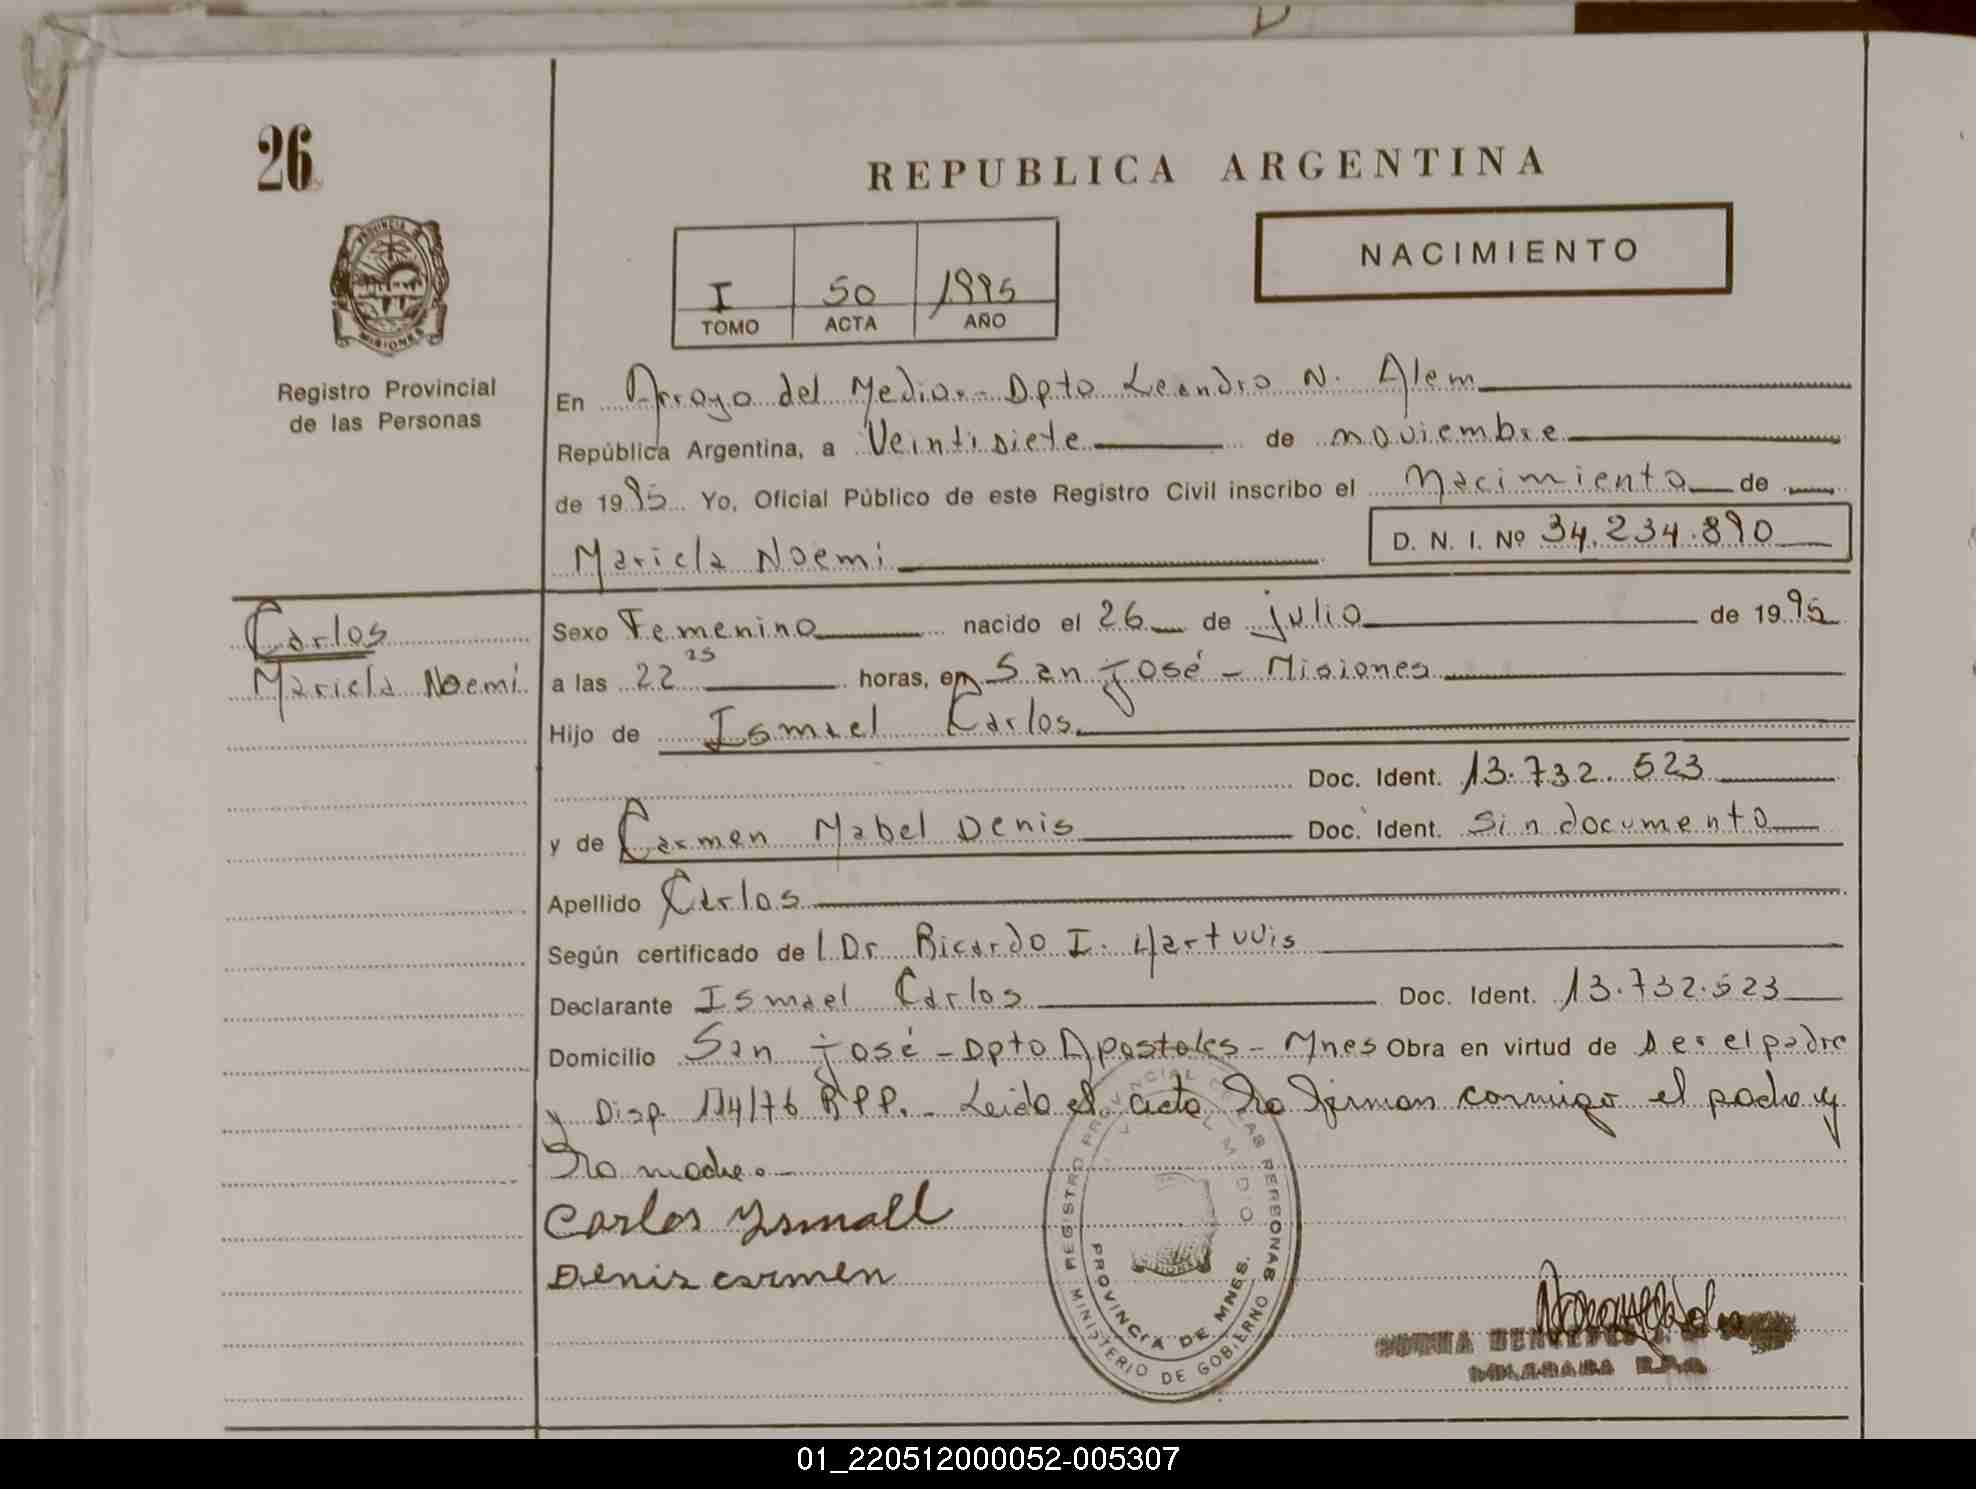 26
REPUBLICA ARGENTINA
NACIMIENTO
I 50 1995
TOMO ACTA AÑO
PROVINCIA DE
MISIONES
Registro Provincial
de las Personas
En Arroyo del Medio.- Dpto Leandro N. Alem
República Argentina, a Veintisiete de noviembre
de 1995 Yo, Oficial Público de este Registro Civil inscribo el Nacimiento de
Mariela Noemi D. N. I. Nº 34.234.890
Carlos
Mariela Noemi
Sexo Femenino nacido el 26 de julio de 1995
a las 22 25 horas, en San José - Misiones
Hijo de Ismael Carlos
Doc. Ident. 13.732.523
y de Carmen Mabel Denis Doc. Ident. Sin documento
Apellido Carlos
Según certificado de l Dr Ricardo I.
Declarante Ismael Carlos Doc. Ident. 13.732.523
Domicilio San José - Dpto Apostoles - Mnes Obra en virtud de ser el padre
y Disp. 174/76 RPP. - Leida el acta la firman conmigo el padre y
la madre.-
Carlos Ysmall
Denis carmen
REGISTRO PROVINCIAL DE LAS PERSONAS
MINISTERIO DE GOBIERNO
PROVINCIA DE MNES.
01_220512000052-005307